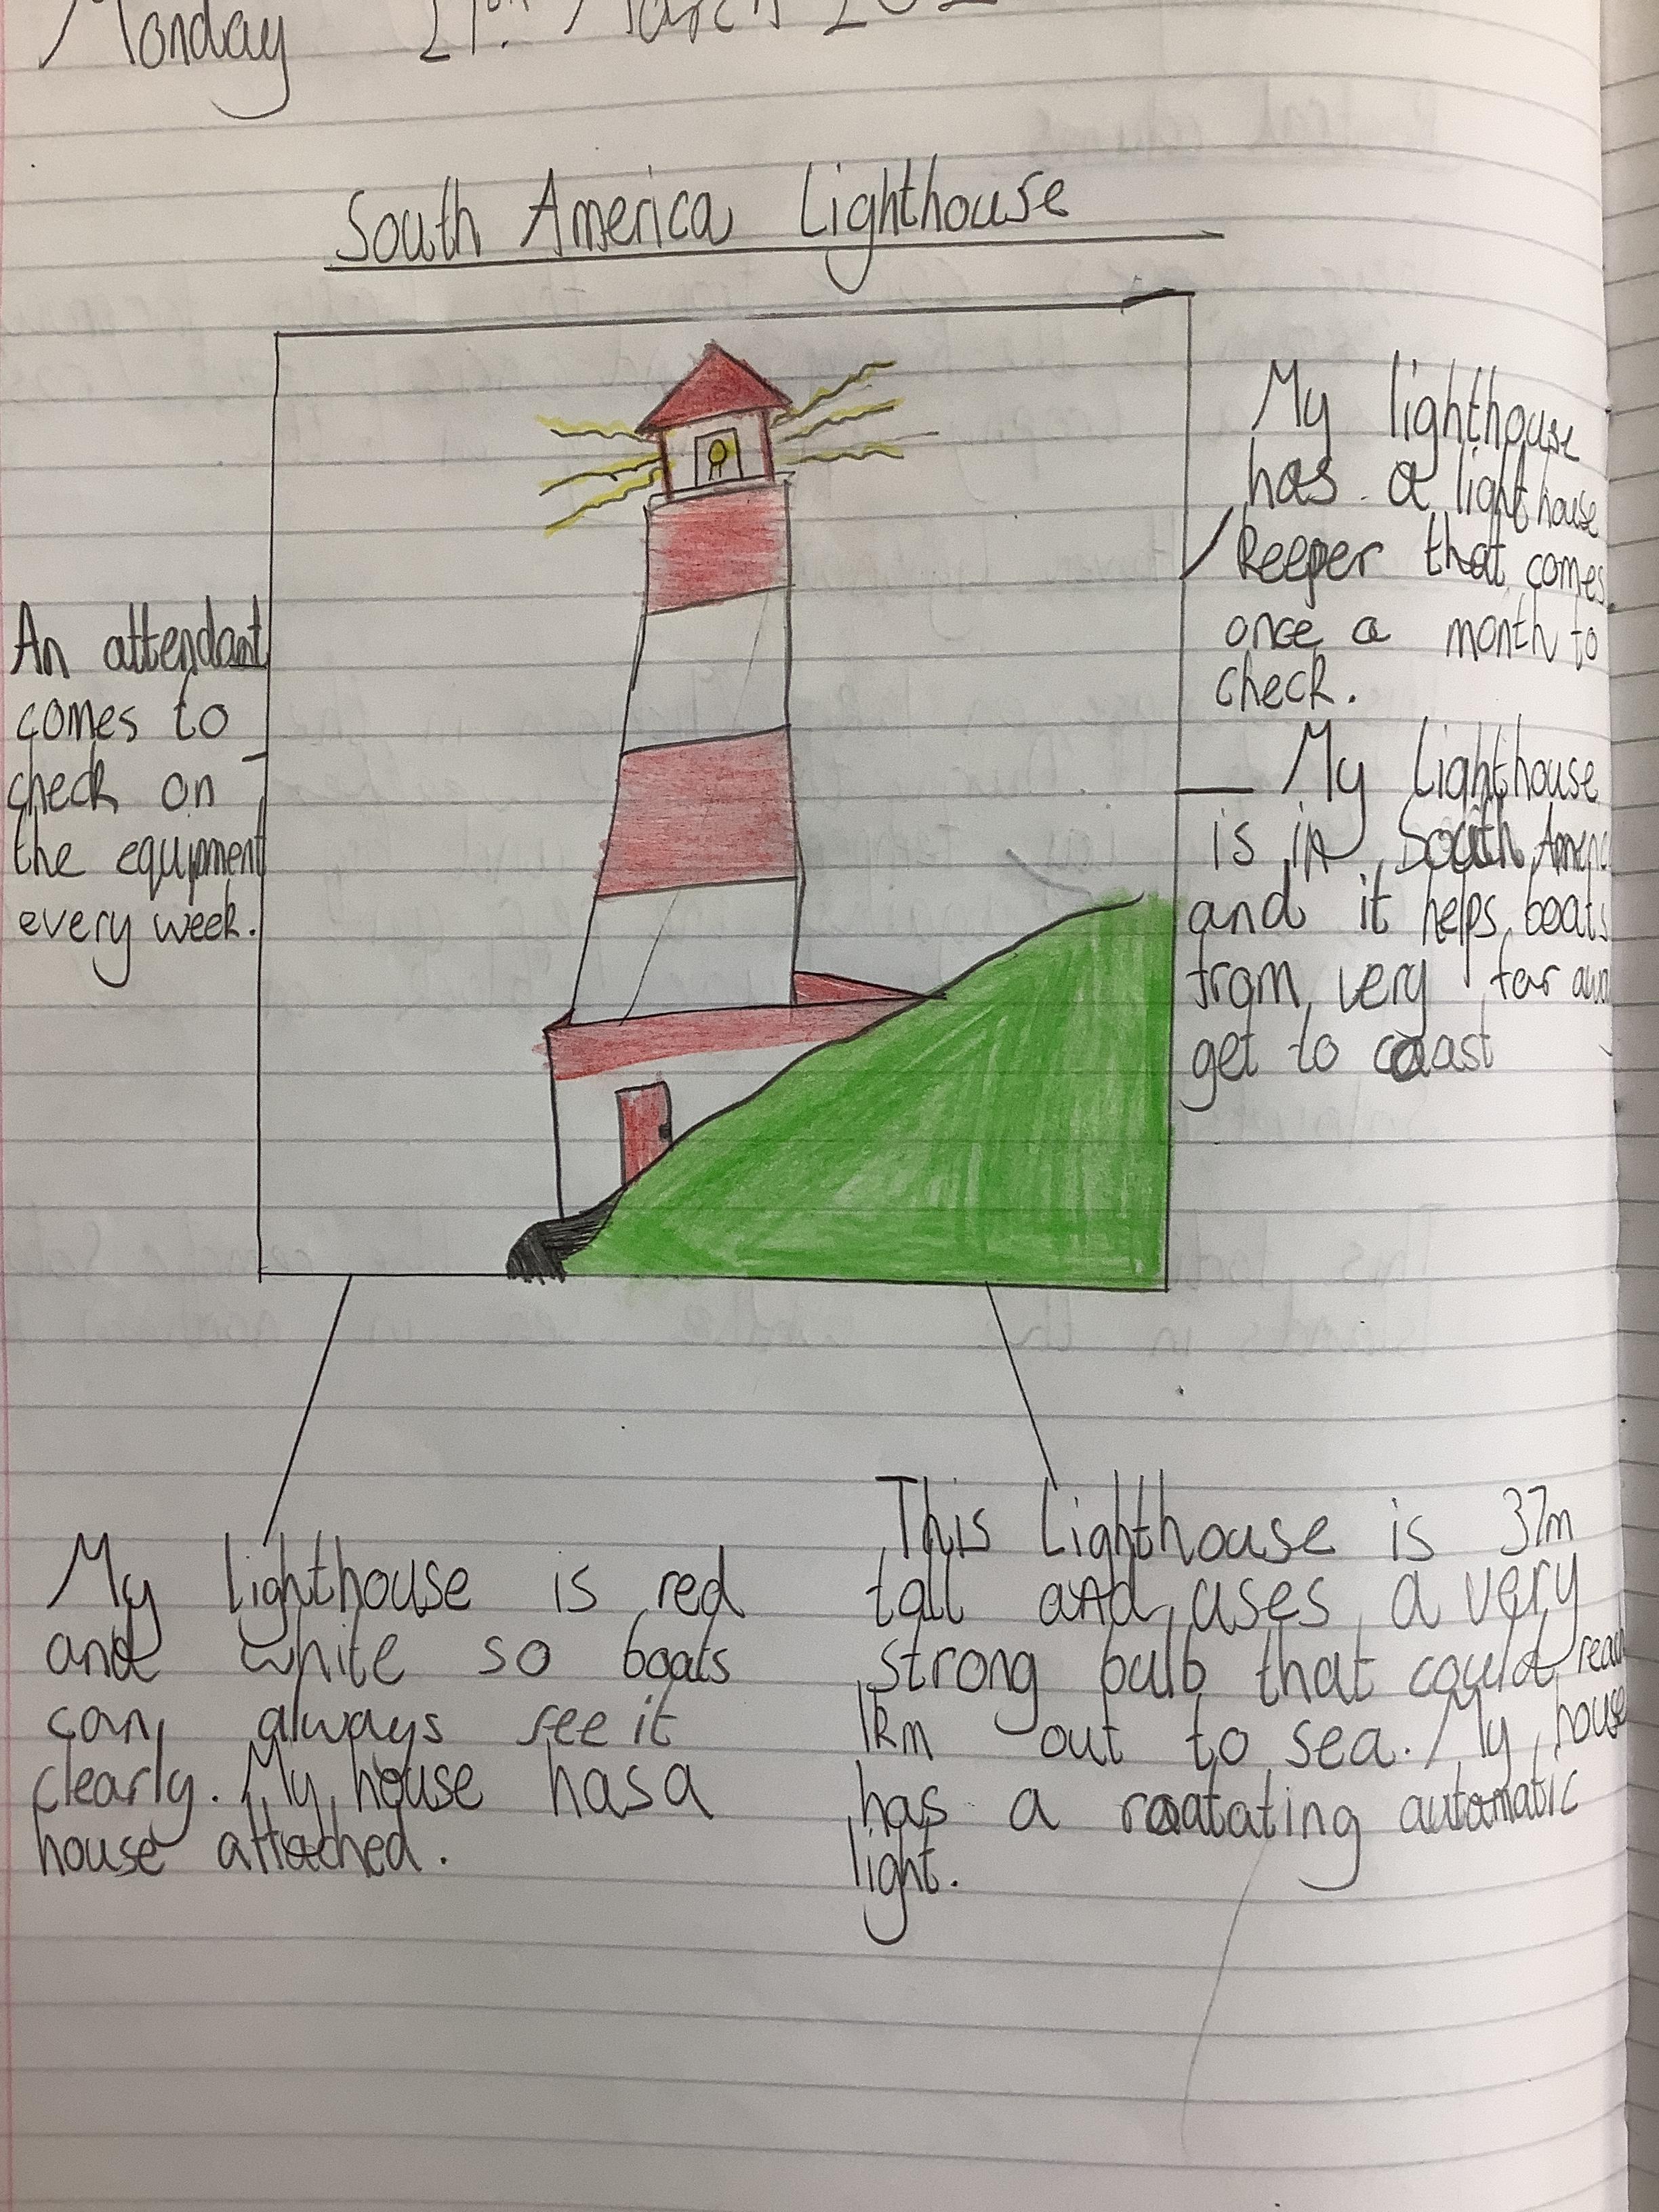 Monday 21st March
South America Lighthouse
My lighthouse
has a lighthouse
keeper that comes
once a month to
check.
An attendant
comes to
check on
the equipment
every week.
My Lighthouse
is in South
and it helps boats
from very far
get to coast
My lighthouse is red
and white so boats
can always see it
clearly. My house has a
house attached.
This Lighthouse is 37m
tall and uses a very
strong bulb that could
1km out to sea. My house
has a roatating automatic
light.